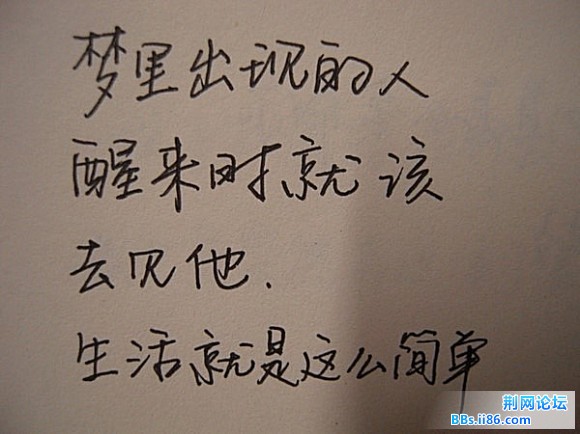 梦里出现的人
醒来时就该
去见他.
生活就是这么简单
荆网论坛
BBs.ii86.com